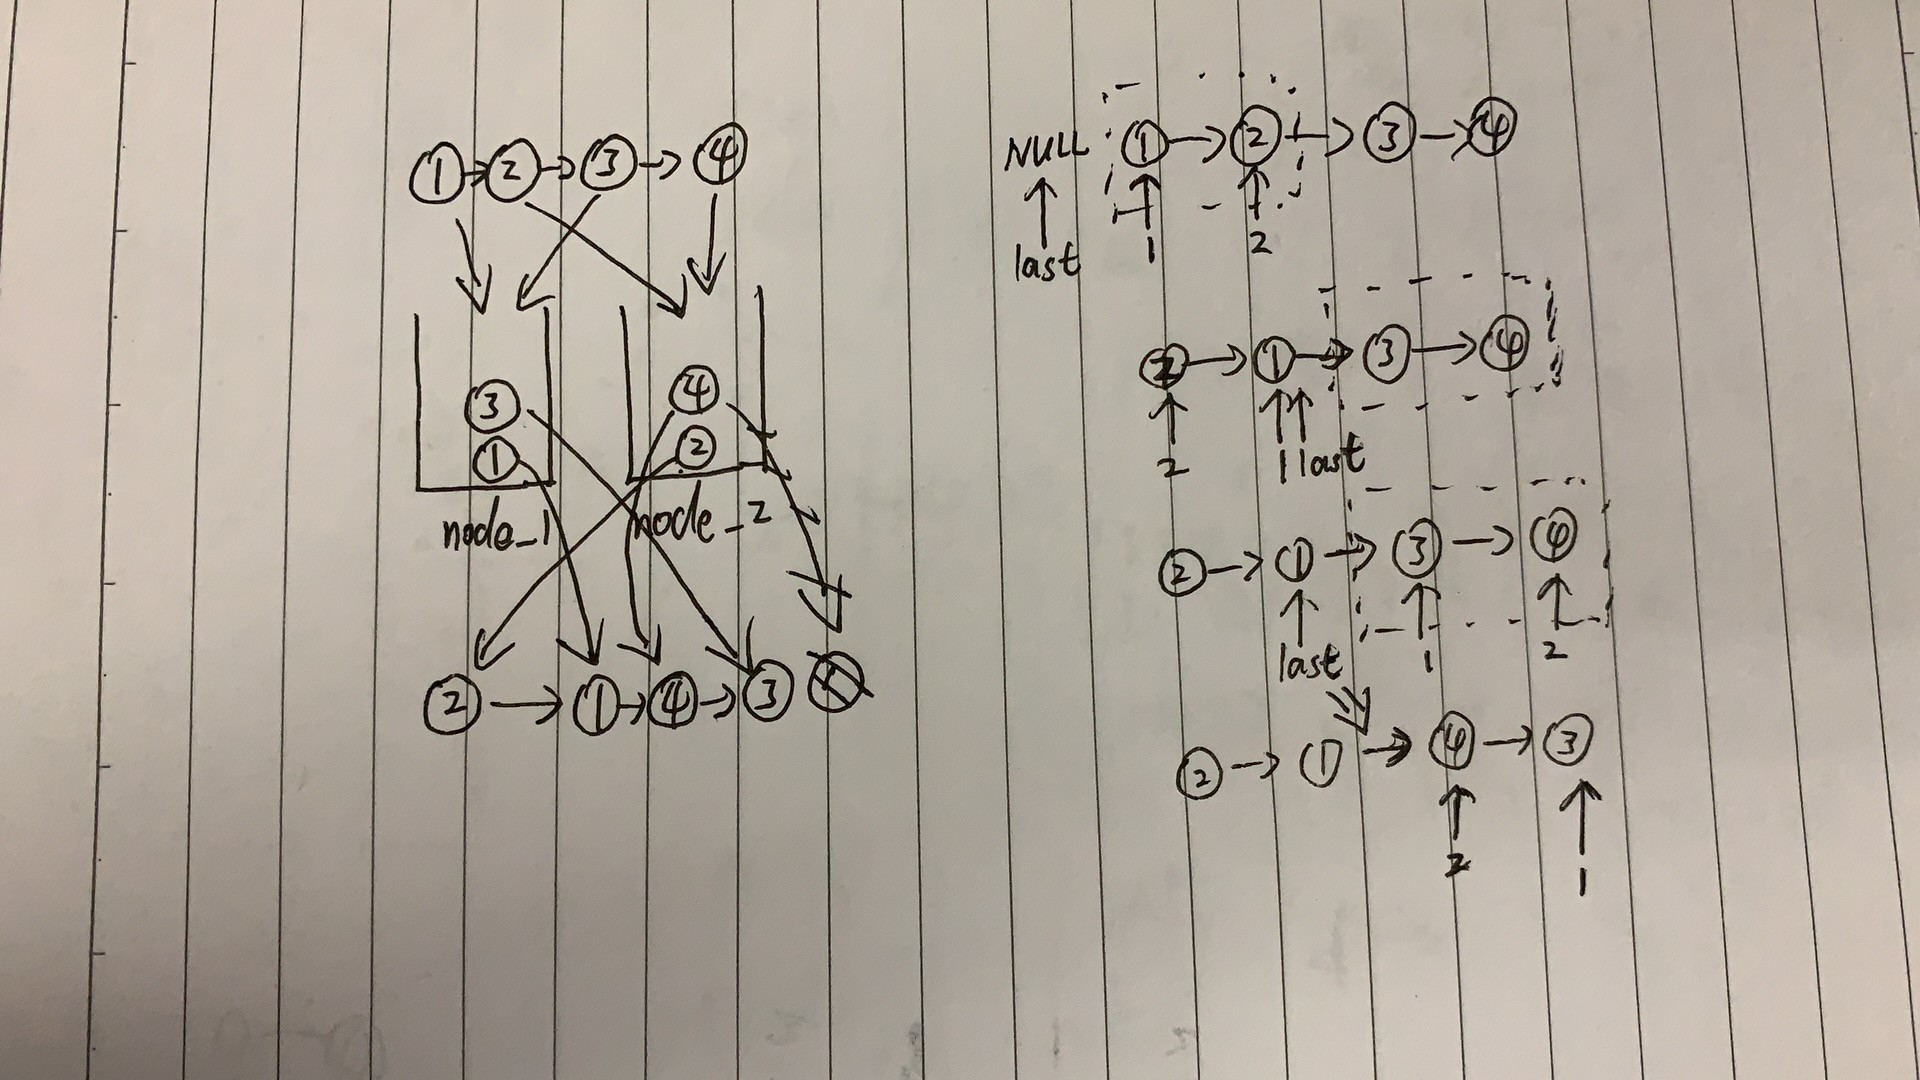 ① → ② → ③ → ④
③ ④
① ②
node_1 node_2
② → ① → ④ → ③
NULL ① → ② → ③ → ④
last 1 2
② → ① → ③ → ④
2 1 last
② → ① → ③ → ④
last 1 2
② → ① → ④ → ③
2 1